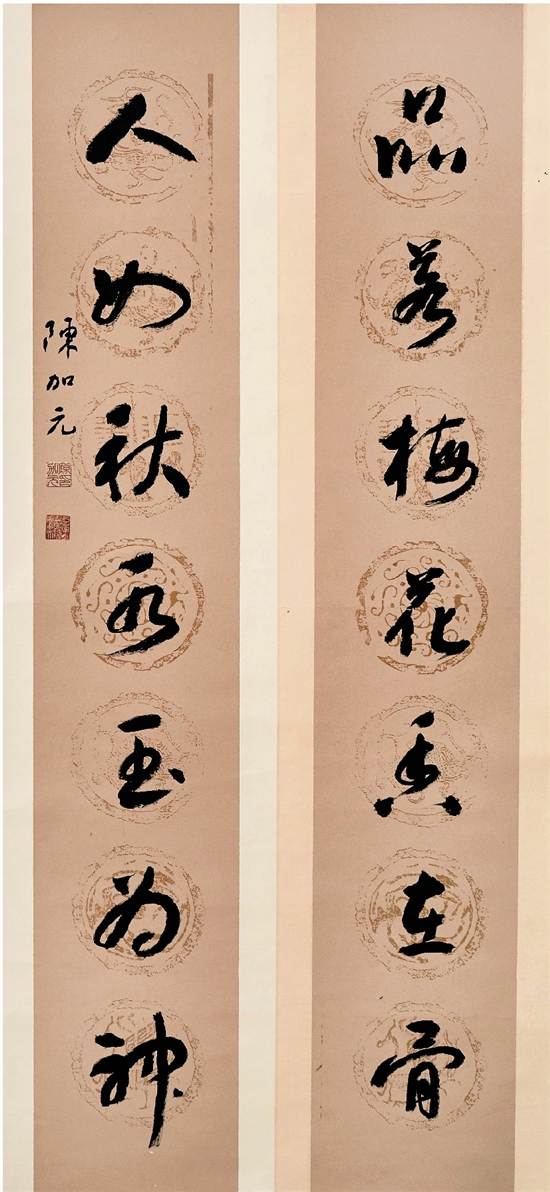 品若梅花香在骨
人如秋水玉为神
陳加元